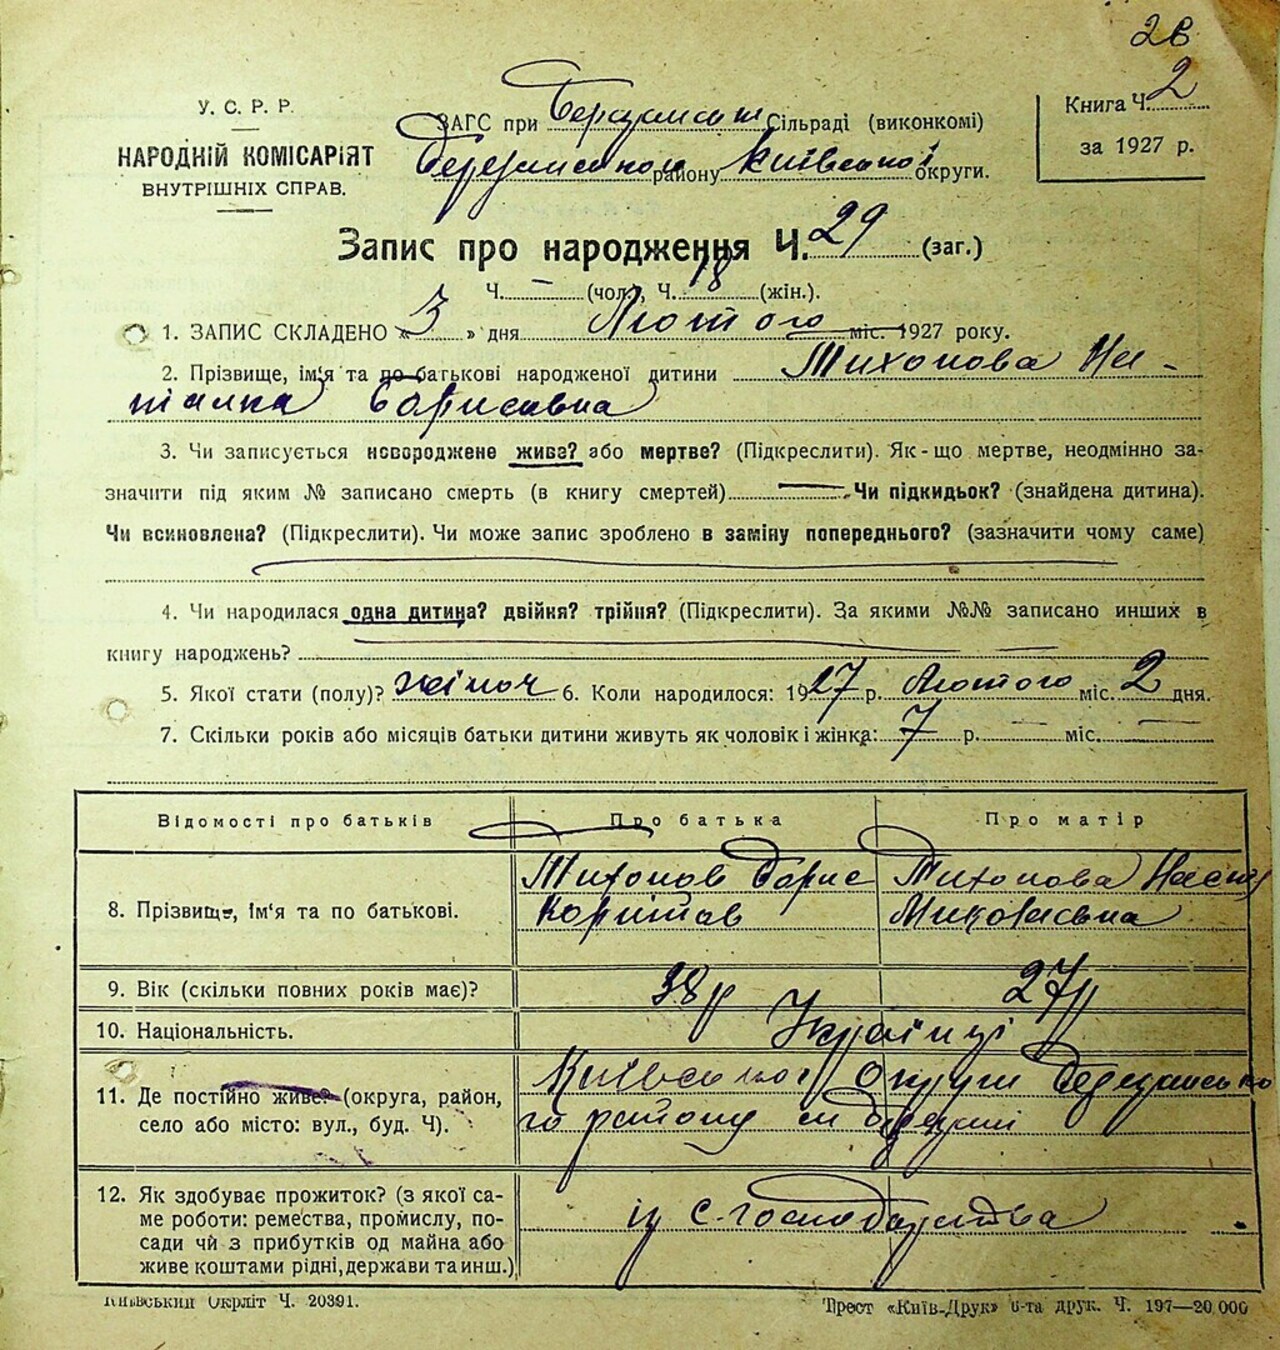 28
У. С. Р. Р.
НАРОДНІЙ КОМІСАРІЯТ
ВНУТРІШНІХ СПРАВ.
ЗАГС при Сільраді (виконкомі)
району Київської округи.
Книга Ч. 2
за 1927 р.
Запис про народження Ч. 29 (заг.)
Ч. — (чол.), Ч. 18 (жін.).
1. ЗАПИС СКЛАДЕНО «3» дня Лютого міс. 1927 року.
2. Прізвище, ім'я та по батькові народженої дитини Тихонова На-
талка Борисівна
3. Чи записується новороджене живе? або мертве? (Підкреслити). Як-що мертве, неодмінно за-
значити під яким № записано смерть (в книгу смертей) Чи підкидьок? (знайдена дитина).
Чи всиновлена? (Підкреслити). Чи може запис зроблено в заміну попереднього? (зазначити чому саме)
4. Чи народилася одна дитина? двійня? трійня? (Підкреслити). За якими №№ записано инших в
книгу народжень?
5. Якої стати (полу)? жіноч 6. Коли народилося: 1927 р. Лютого міс. 2 дня.
7. Скільки років або місяців батьки дитини живуть як чоловік і жінка: 7 р. — міс. —
Відомості про батьків Про батька Про матір
8. Прізвище, ім'я та по батькові.
Тихонов Борис Тихонова
Миколаєвна
9. Вік (скільки повних років має)? 38р 27р
10. Національність. Українці
11. Де постійно живе? (округа, район,
село або місто: вул., буд. Ч).
Київської Округи Березансько
го району
12. Як здобуває прожиток? (з якої са-
ме роботи: ремества, промислу, по-
сади чй з прибутків од майна або
живе коштами рідні, держави та инш.)
із с.-господарства
Київський Окрліт Ч. 20391.
Трест «Київ-Друк» 6-та друк. Ч. 197—20.000